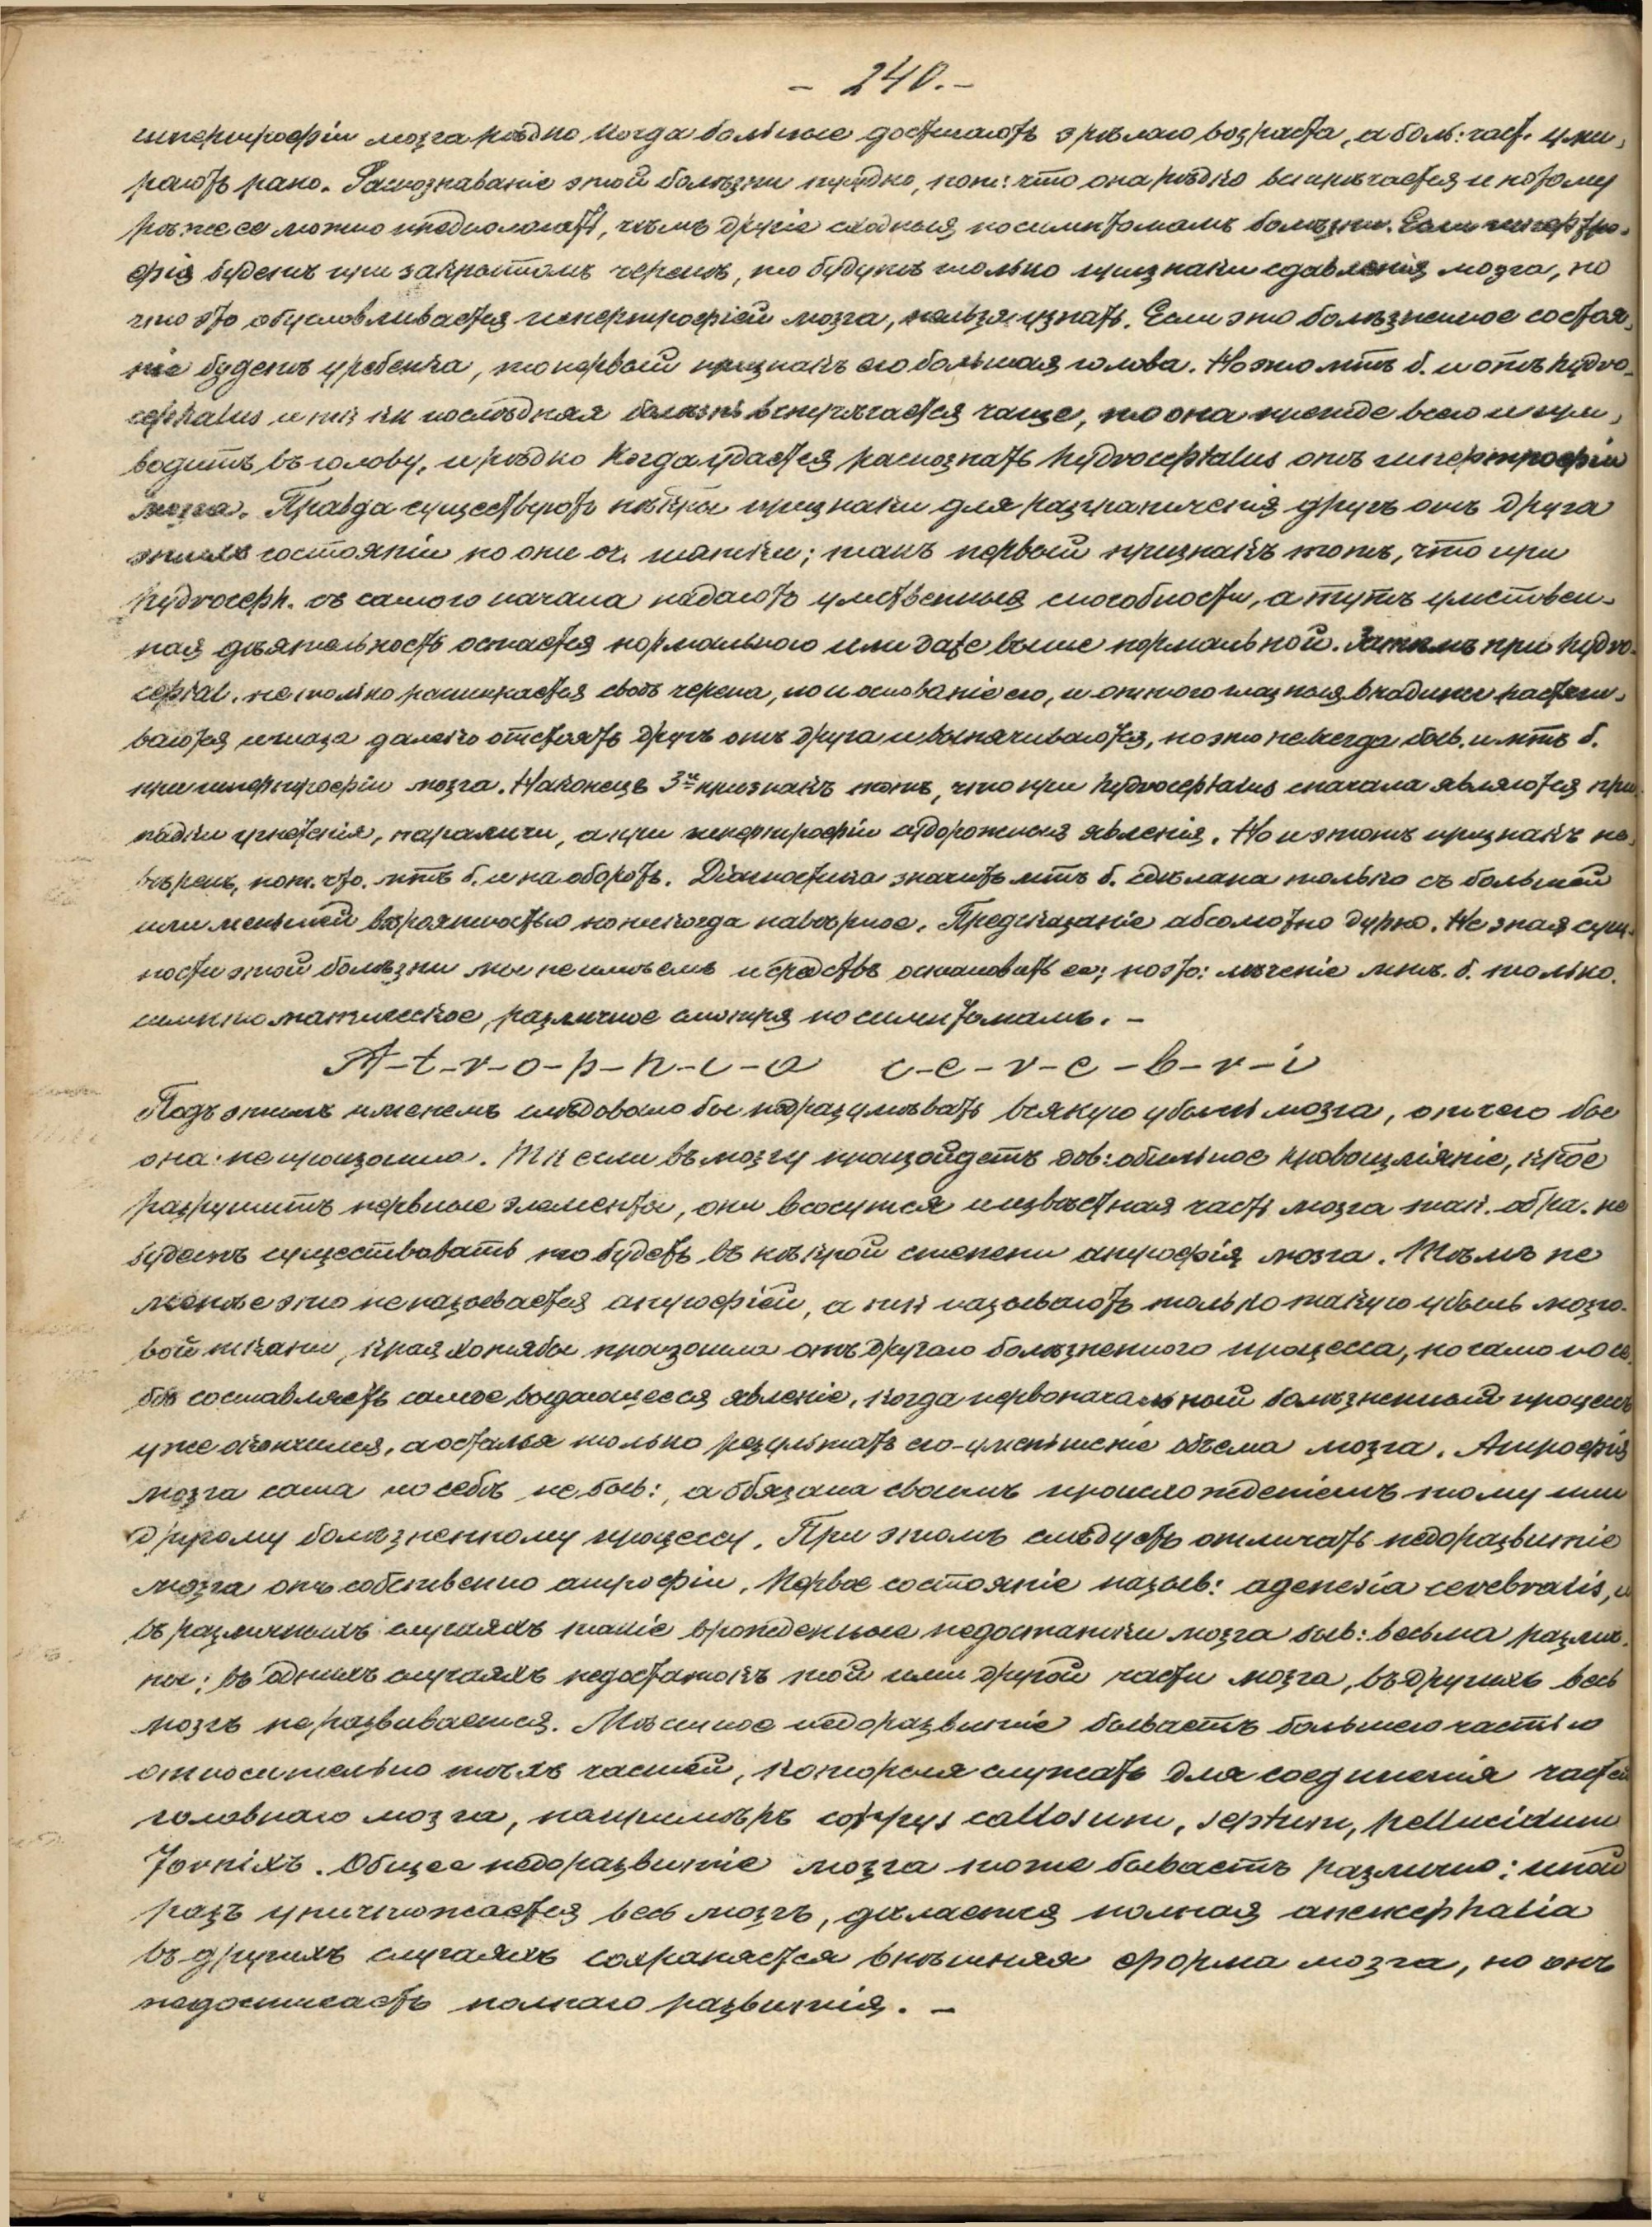 - 240. -
гипертрофіи мозга рѣдко когда больные достигаютъ зрѣлаго возраста, а боль: част. уми-
раютъ рано. Распознаваніе этой болѣзни трудно, пот: что она рѣдко встрѣчается и потому
рѣже ее можно предполагать, чѣмъ другіе сходныя по симптомамъ болѣзни. Если гипертро-
фія будетъ при закрытомъ черепѣ, то будутъ только признаки сдавленія мозга, но
что это обусловливается гипертрофіей мозга, нельзя узнать. Если это болѣзненное состоя-
ніе будетъ у ребенка, то первый признакъ его большая голова. Но это мтъ б. и отъ hydro-
cephalus и тк: кк послѣдняя болѣзнь встрѣчается чаще, то она прежде всего и при-
водитъ въ голову, и рѣдко когда удается распознать hydrocephalus отъ гипертрофіи
мозга. Правда существуютъ нѣкрые признаки для разграниченія другъ отъ друга
этихъ состояній но они оч. шатки; такъ первый признакъ тотъ, что при
hydroceph. съ самого начала падаютъ умственныя способности, а тутъ умствен-
ная дѣятельность остается нормальною или даже выше нормальной. Затѣмъ при hydro-
cephal. не только расширяется сводъ черепа, но и основаніе его, и от того глазныя впадины растяги-
ваются и глаза далеко отстоятъ другъ отъ друга и выпячиваются, но это не всегда быв. и мтъ б.
при гипертрофіи мозга. Наконецъ 3й признакъ тотъ, что при hydrocephalus сначала являются при-
падки угнетенія, параличи, а при гипертрофіи судорожныя явленія. Но и этотъ признакъ не-
вѣренъ, пот. что. мтъ б. и на оборотъ. Діагностика значитъ мтъ б. сдѣлана только съ большей
или меньшей вѣроятностью но никогда навѣрное. Предсказаніе абсолютно дурно. Не зная сущ-
ности этой болѣзни мы не имѣемъ и средствъ остановить ее; поэто: лѣченіе мтъ. б. только
симптоматическое, различное смотря по симптомамъ. -
A-t-r-o-p-h-i-a c-e-r-e-b-r-i
Подъ этимъ именемъ слѣдовало бы подразумѣвать всякую убыль мозга, отчего бы
она не произошла. Тк если въ мозгу произойдетъ дов: обильное кровоизліяніе, ктое
разрушитъ нервные элементы, они всосутся и извѣстная часть мозга так. обра. не
будетъ существовать то будетъ въ нѣкрой степени атрофія мозга. Тѣмъ не
менѣе это не называется атрофіей, а тк: называютъ только такую убыль мозго-
вой ткани, края хотя бы произошла отъ другаго болѣзненнаго процесса, но само по се-
бѣ составляетъ самое выдающееся явленіе, когда первоначальный болѣзненный процессъ
уже окончился, а остался только результатъ его - уменьшеніе объема мозга. Атрофія
мозга сама по себѣ не быв:, а обязана своимъ происхожденіемъ тому или
другому болѣзненному процессу. При этомъ слѣдуетъ отличать недоразвитіе
мозга отъ собственно атрофіи. Первое состояніе назыв: agenesia cerebralis, и
въ различныхъ случаяхъ такіе врожденные недостатки мозга быв: весьма различ-
ны: въ однихъ случаяхъ недостатокъ той или другой части мозга, въ другихъ весь
мозгъ не развивается. Мѣстное недоразвитіе бываетъ большею частью
относительно тѣхъ частей, которыя служатъ для соединенія частей
головнаго мозга, напримѣръ corpus callosum, septum, pellucidum
fornixъ. Общее недоразвитіе мозга тоже бываетъ различно: иной
разъ уничтожается весь мозгъ, дѣлается полная anencephalia
въ другихъ случаяхъ сохраняется внѣшняя форма мозга, но онъ
недостигаетъ полнаго развитія. -